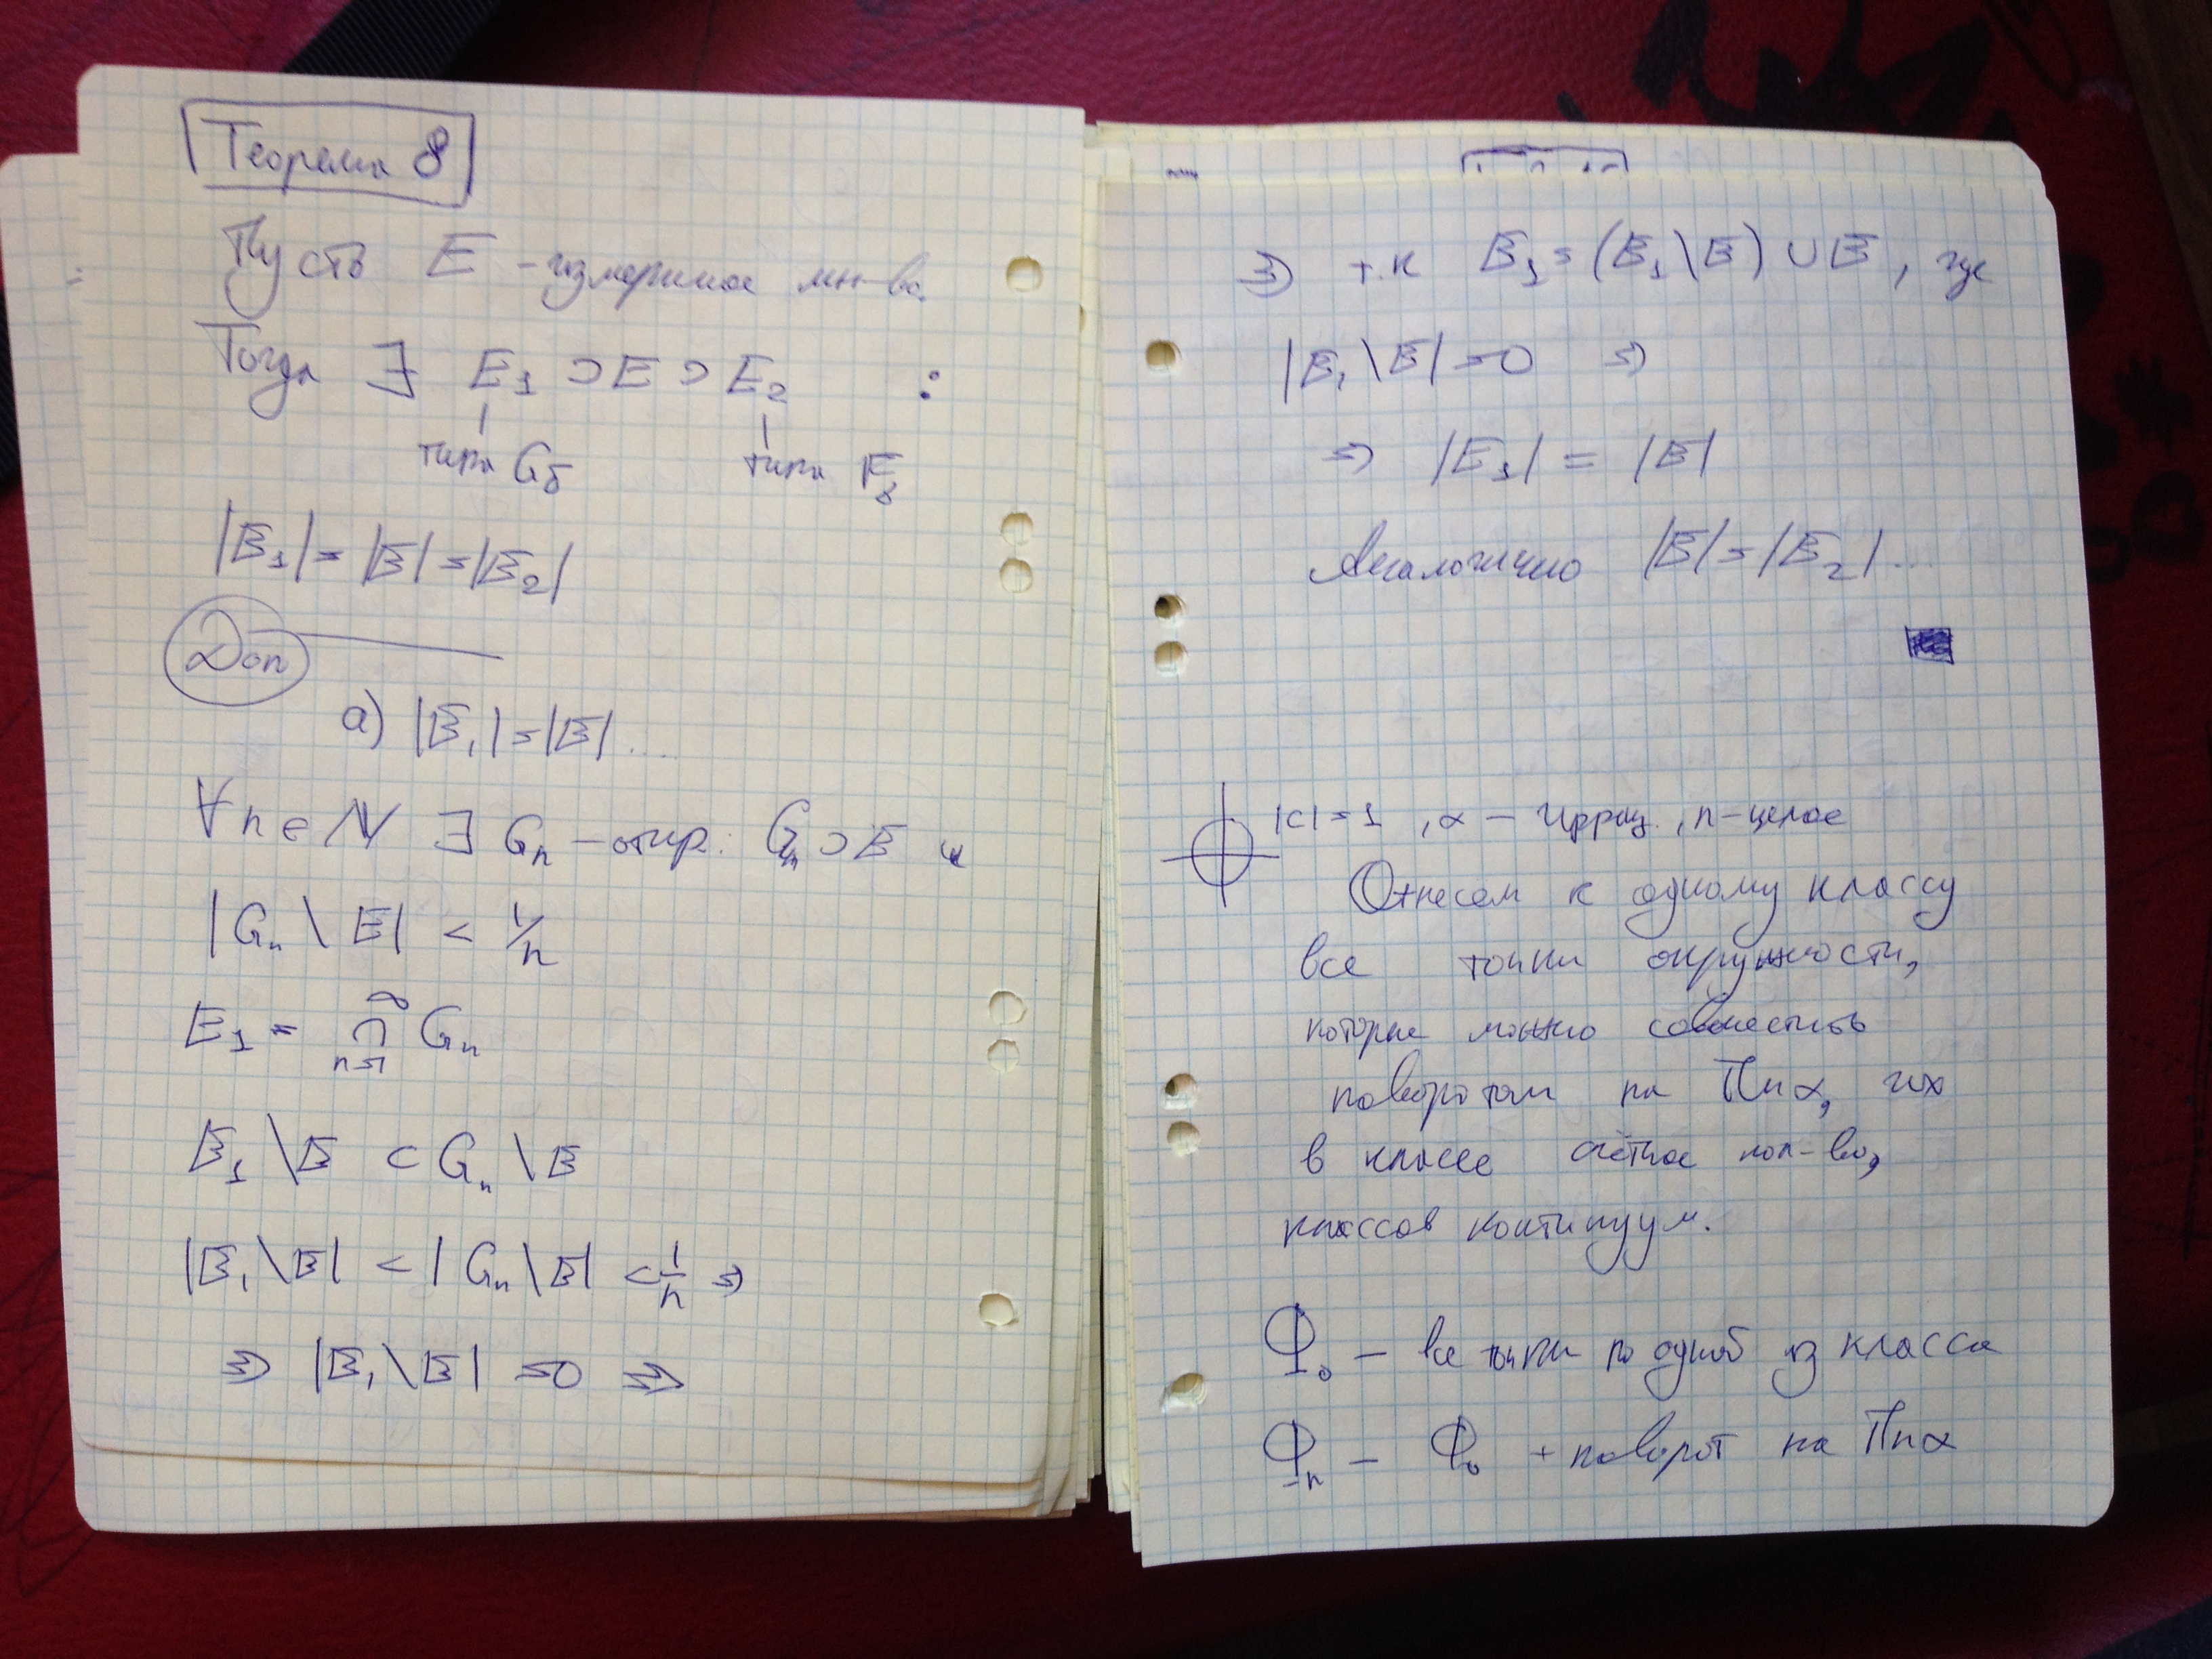 Теорема 8
Пусть E - измеримое мн-во.
Тогда ∃ E₁ ⊃ E ⊃ E₂ :
типа G_δ типа F_δ
|E₁| = |E| = |E₂|
Док
а) |E₁| = |E| ...
∀ n ∈ N ∃ Gₙ - откр. : Gₙ ⊃ E и
|Gₙ \ E| < 1/n
E₁ = ∩_{n=1}^{∞} Gₙ
E₁ \ E ⊂ Gₙ \ E
|E₁ \ E| < |Gₙ \ E| < 1/n ⇒
⇒ |E₁ \ E| = 0 ⇒
⇒ т.к E₁ = (E₁ \ E) ∪ E, где
|E₁ \ E| = 0 ⇒
⇒ |E₁| = |E|
Аналогично |E| = |E₂| ...
|C| = 1 , α - иррац. , n - целое
Отнесем к одному классу
все точки окружности,
которые можно совместить
поворотом на Πnα, их
в классе счётное кол-во,
классов континуум.
Φ₀ - все точки по одной из класса
Φₙ - Φ₀ + поворот на Πnα